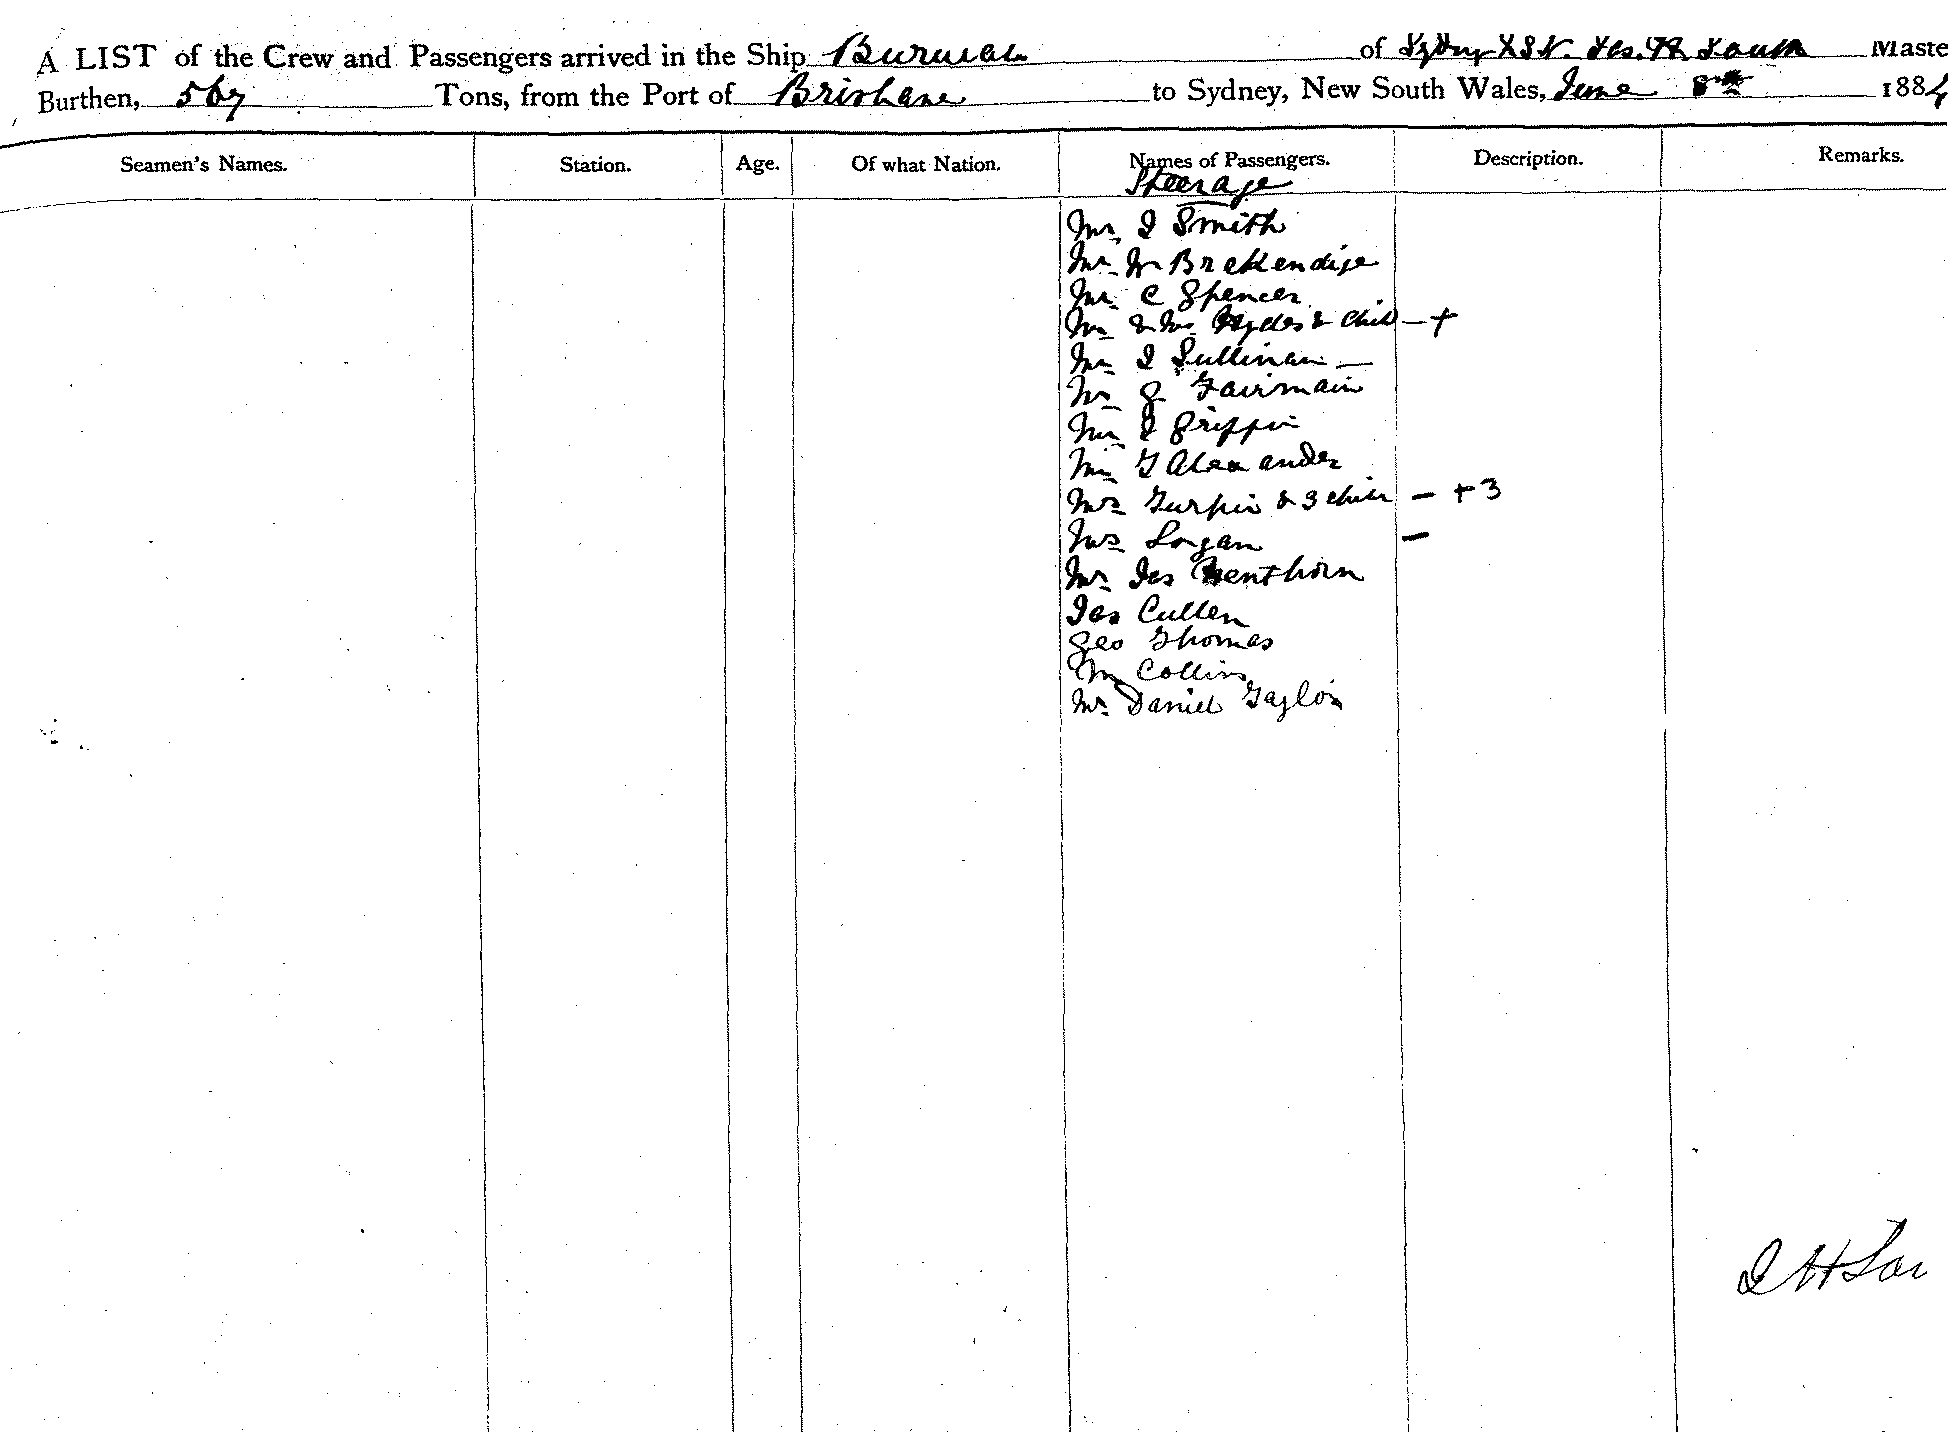 A LIST of the Crew and Passengers arrived in the Ship Burwah of Sydney NSW. Jas. H South Maste
Burthen, 567 Tons, from the Port of Brisbane to Sydney, New South Wales, June 8th 1884
Seamen's Names. Station. Age. Of what Nation. Names of Passengers. Description. Remarks.
Steerage
Mr J Smith
Mr W Brekendige
Mr C Spencer
Mr & Mrs Hydes & Child – +
Mr J Sullivan –
Mr G Fairmain
Mr J Griffin
Mr T Alexander
Mrs Turpin & 3 chier – + 3
Mrs Logan –
Mr Jas Henthorn
Jas Cullen
Geo Thomas
M Collins
Mr Daniel Taylor
J H Sou